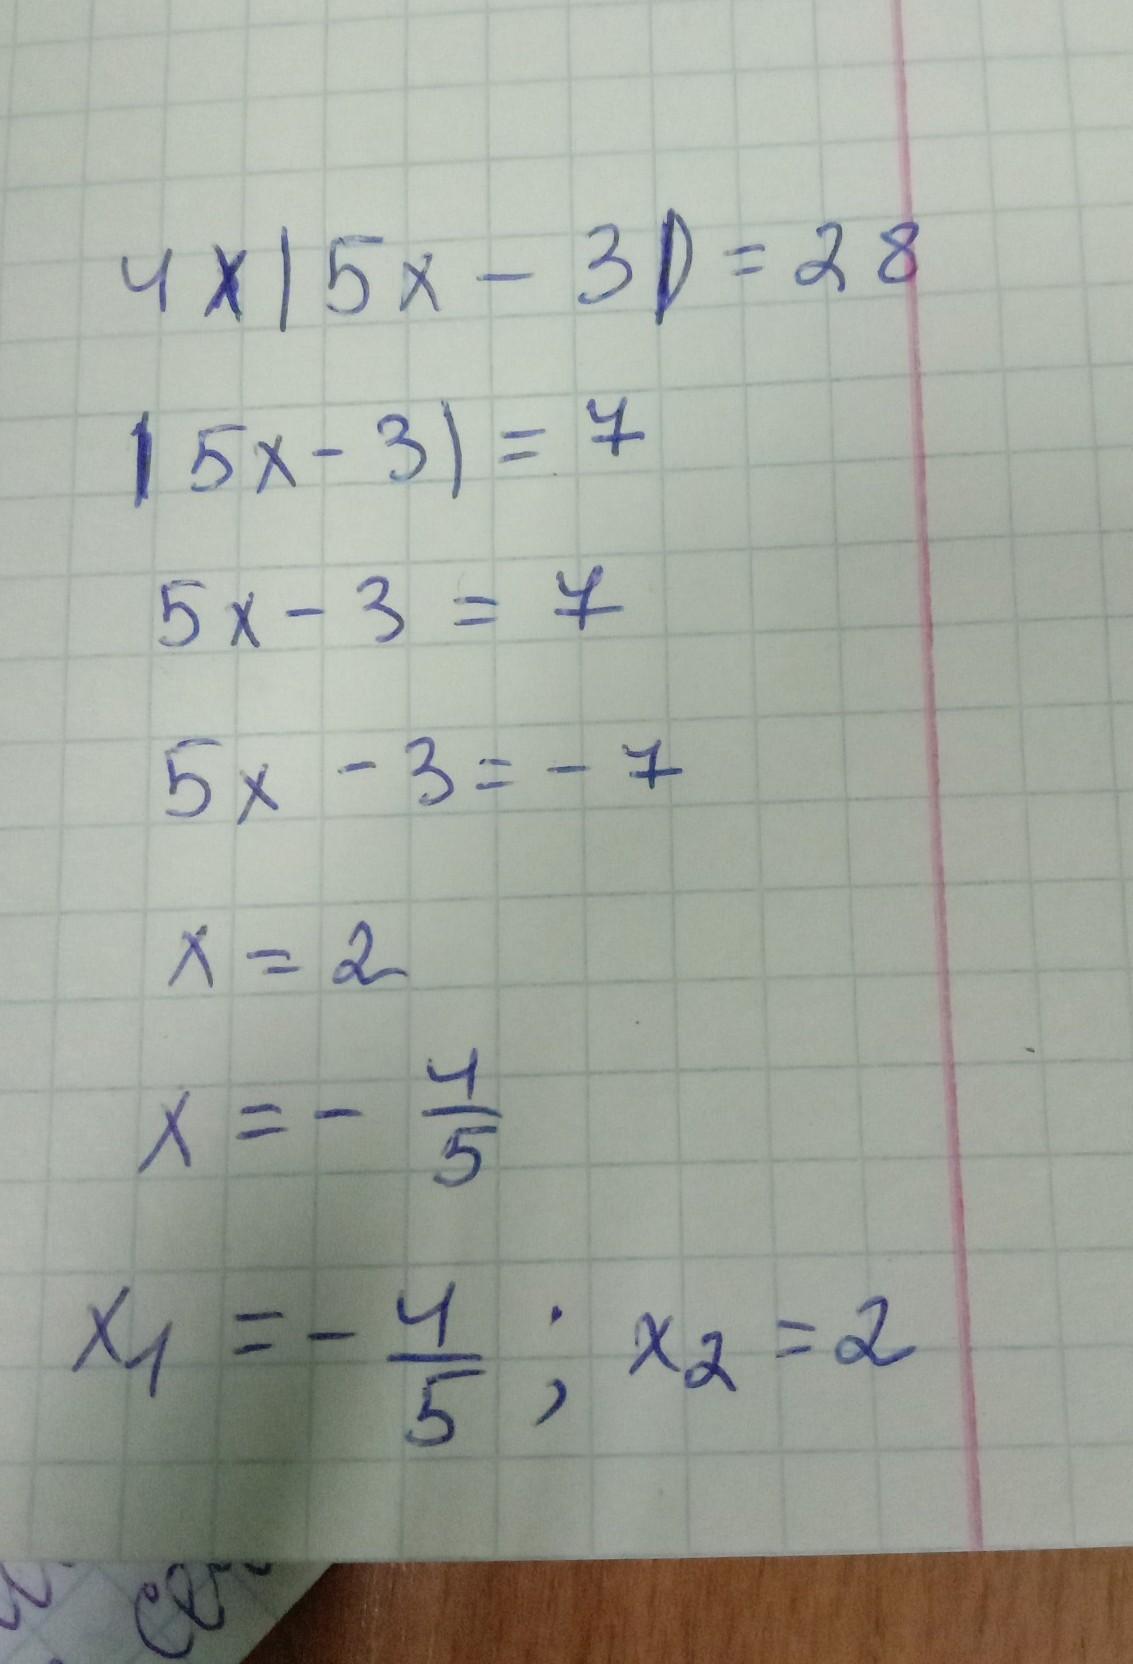 4x|5x - 3| = 28
|5x - 3| = 7
5x - 3 = 7
5x - 3 = - 7
x = 2
x = - 4/5
x₁ = - 4/5 ; x₂ = 2